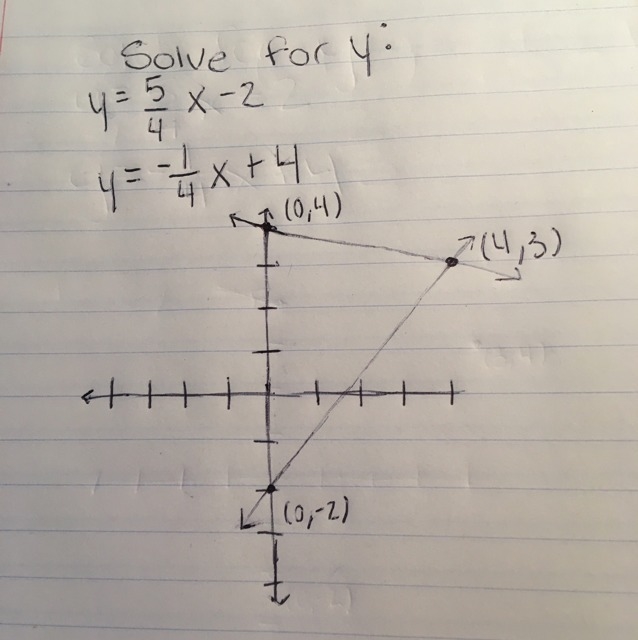 Solve for y:
y = 5/4 x - 2
y = -1/4 x + 4
(0,4)
(4,3)
(0,-2)